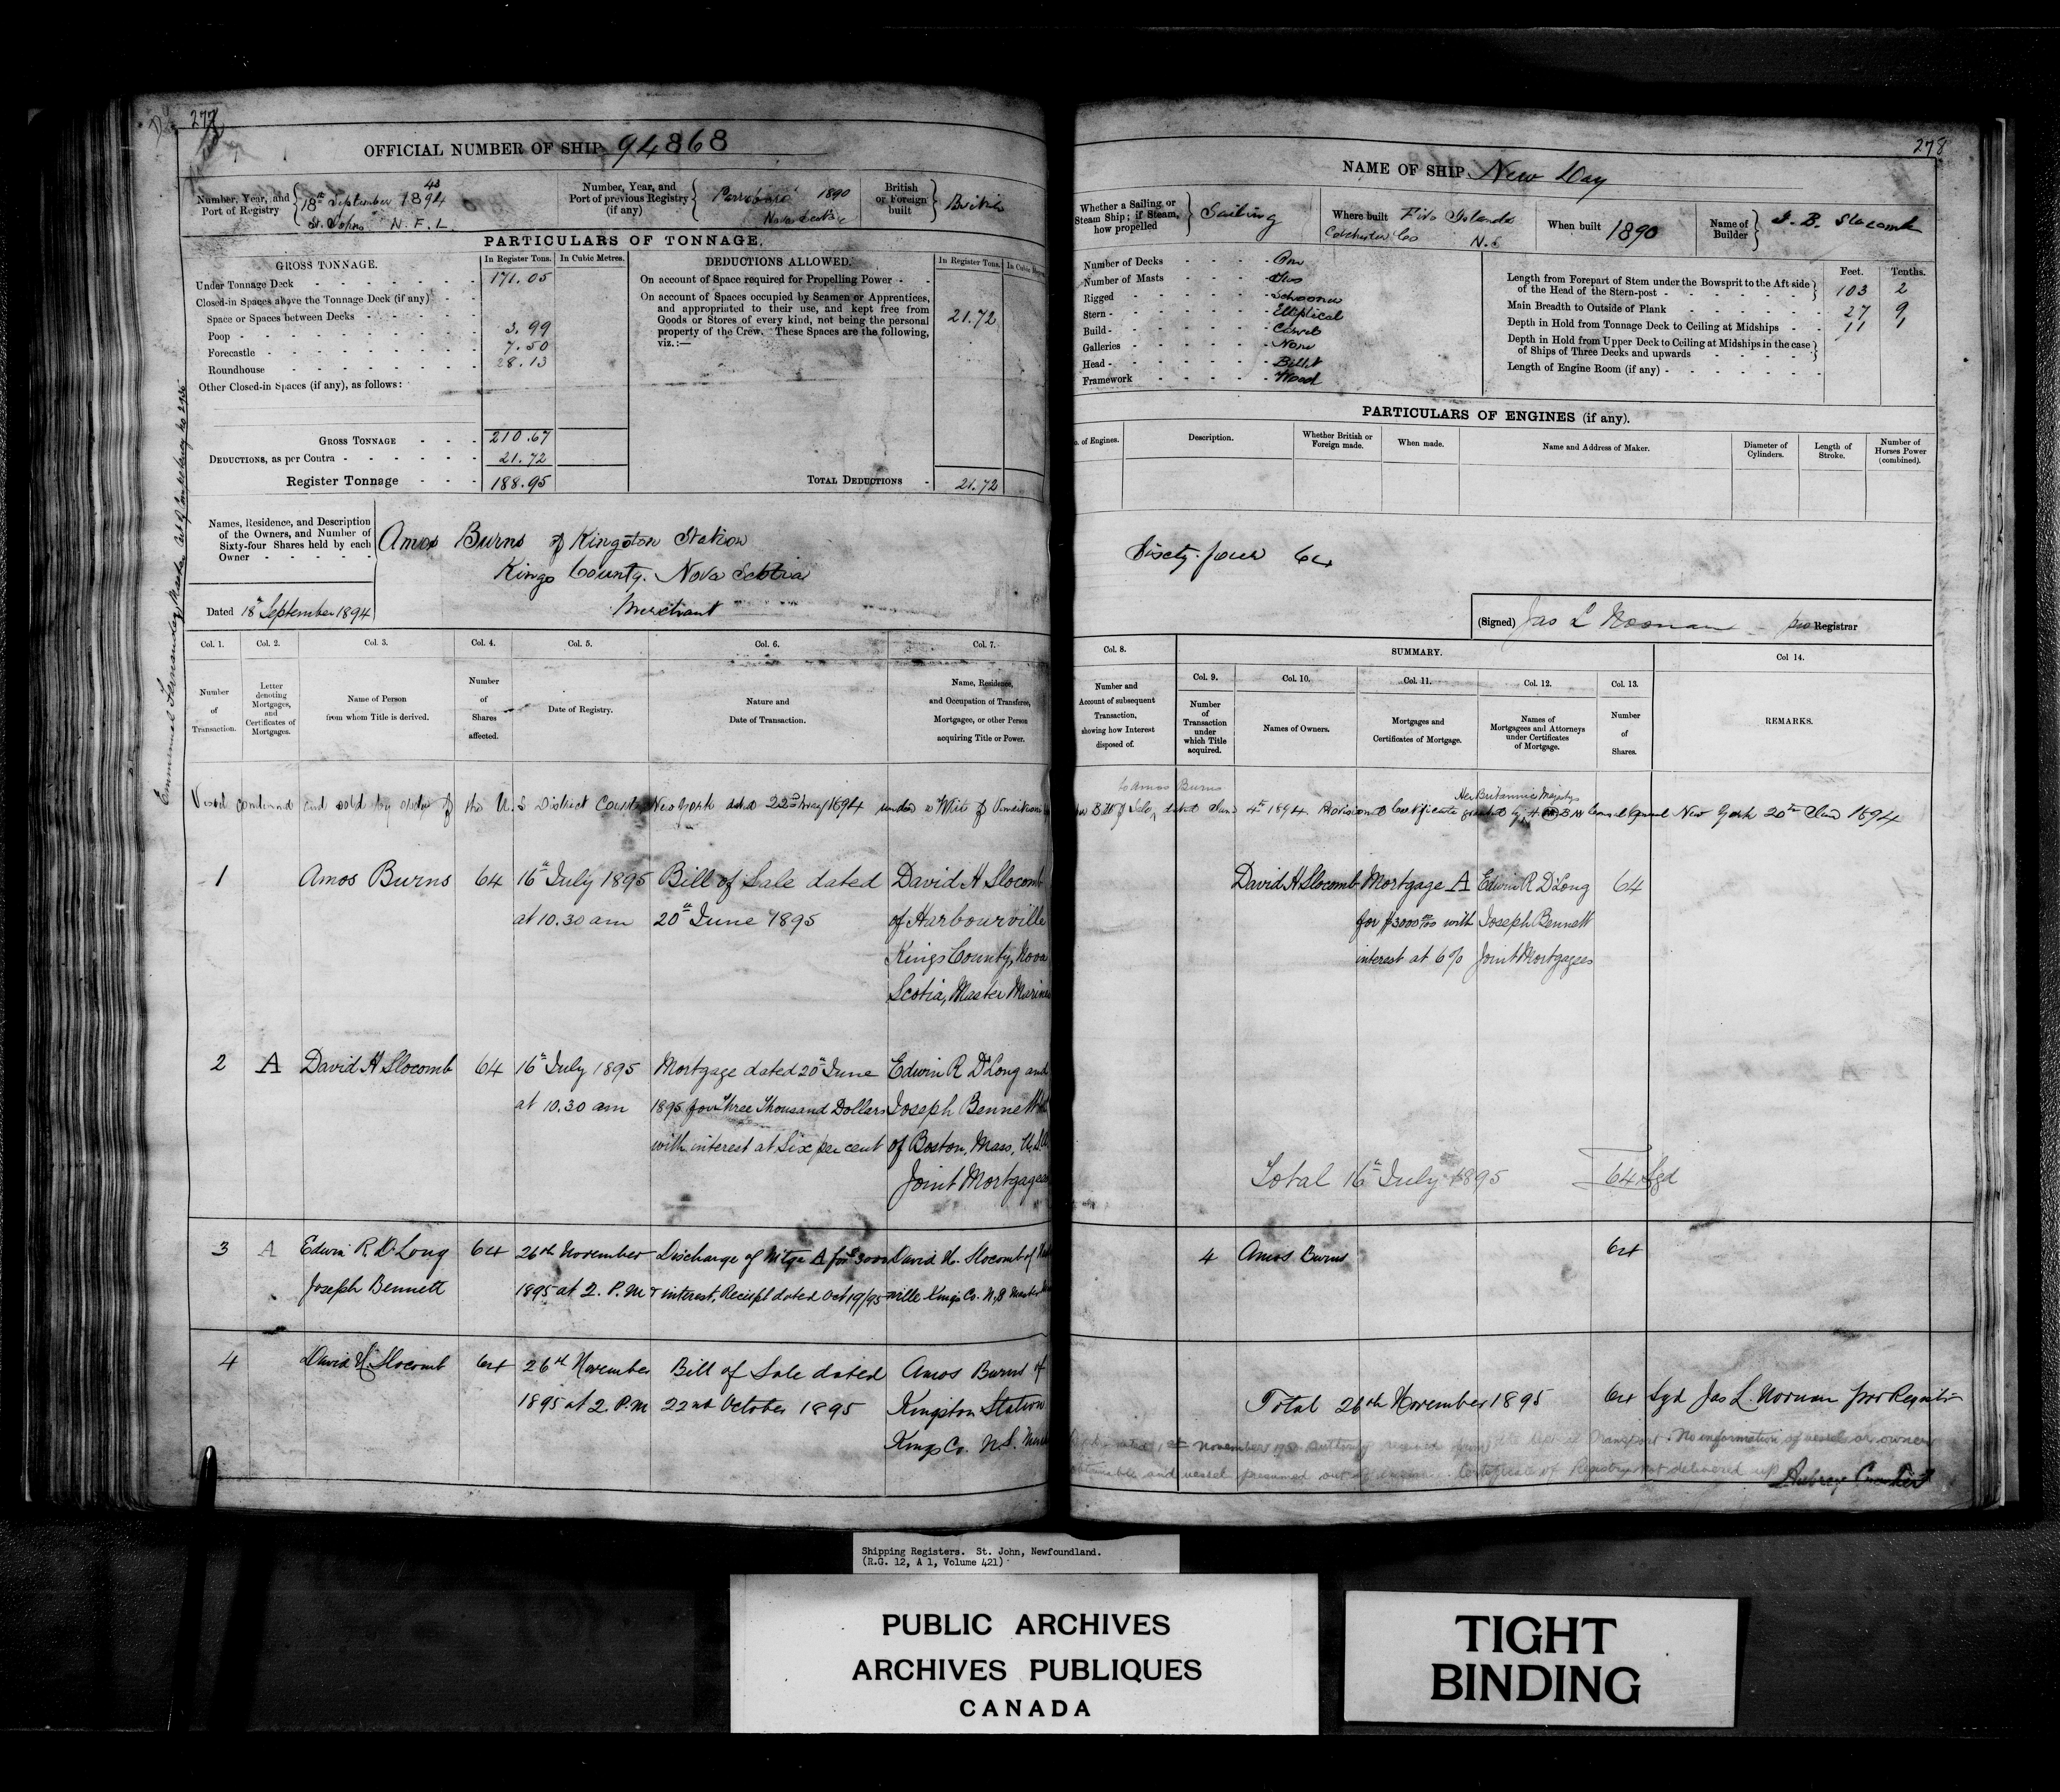 277
OFFICIAL NUMBER OF SHIP 94868
Number, Year, and Port of Registry
43
18th September 1894
St. Johns N.F.L.
Number, Year, and Port of previous Registry (if any)
Parrsboro' 1890
Nova Scotia
British or Foreign built
British
PARTICULARS OF TONNAGE.
GROSS TONNAGE.
In Register Tons.
In Cubic Metres.
Under Tonnage Deck 171.05
Closed-in Spaces above the Tonnage Deck (if any)
Space or Spaces between Decks
Poop 3.99
Forecastle 7.50
Roundhouse 28.13
Other Closed-in Spaces (if any), as follows:
GROSS TONNAGE 210.67
DEDUCTIONS, as per Contra 21.72
Register Tonnage 188.95
DEDUCTIONS ALLOWED.
In Register Tons.
On account of Space required for Propelling Power
On account of Spaces occupied by Seamen or Apprentices,
and appropriated to their use, and kept free from
Goods or Stores of every kind, not being the personal
property of the Crew. These Spaces are the following,
viz.:—
21.72
TOTAL DEDUCTIONS 21.72
Names, Residence, and Description
of the Owners, and Number of
Sixty-four Shares held by each
Owner
Amos Burns of Kingston Station
Kings County. Nova Scotia
Merchant
Dated 18th September 1894
Col. 1. Col. 2. Col. 3. Col. 4. Col. 5. Col. 6. Col. 7.
Number of Transaction.
Letter denoting Mortgages, and Certificates of Mortgages.
Name of Person from whom Title is derived.
Number of Shares affected.
Date of Registry.
Nature and Date of Transaction.
Name, Residence, and Occupation of Transferee, Mortgagee, or other Person acquiring Title or Power.
Vessel condemned and sold by order of the U.S District Court New York dated 22nd May 1894 under a Writ of
1 Amos Burns 64 16th July 1895 Bill of Sale dated David H Slocomb
at 10.30 am 20th June 1895 of Harbourville
Kings County, Nova
Scotia, Master Mariner
2 A David H Slocomb 64 16th July 1895 Mortgage dated 20th June Edwin R D'Long and
at 10.30 am 1895 for Three Thousand Dollars Joseph Bennett
with interest at Six per cent of Boston, Mass, U.S.A
Joint Mortgagees
3 A Edwin R. D'Long 64 26th November Discharge of Mtge A for $3000 David H. Slocomb of
Joseph Bennett 1895 at 2. P.M + interest, Reciept dated Oct 19/95 ville Kings Co. N,S Master
4 David H. Slocomb 64 26th November Bill of Sale dated Amos Burns of
1895 at 2. P.M 22nd October 1895 Kingston Station
Kings Co. N.S.
278
NAME OF SHIP New Day
Whether a Sailing or Steam Ship; if Steam, how propelled
Sailing
Where built Five Islands
Colchester Co N.S
When built 1890
Name of Builder
Slocomb
Number of Decks One
Number of Masts Two
Rigged Schooner
Stern Elliptical
Build Carvel
Galleries None
Head Billet
Framework Wood
Feet. Tenths.
Length from Forepart of Stem under the Bowsprit to the Aft side
of the Head of the Stern-post 103 2
Main Breadth to Outside of Plank 27 9
Depth in Hold from Tonnage Deck to Ceiling at Midships 11 1
Depth in Hold from Upper Deck to Ceiling at Midships in the case
of Ships of Three Decks and upwards
Length of Engine Room (if any)
PARTICULARS OF ENGINES (if any).
of Engines.
Description.
Whether British or Foreign made.
When made.
Name and Address of Maker.
Diameter of Cylinders.
Length of Stroke.
Number of Horses Power (combined).
Sixty-four 64
(Signed) Jas L Noonan pro Registrar
Col. 8.
SUMMARY.
Col 14.
Col. 9. Col. 10. Col. 11. Col. 12. Col. 13.
Number and Account of subsequent Transaction, showing how Interest disposed of.
Number of Transaction under which Title acquired.
Names of Owners.
Mortgages and Certificates of Mortgage.
Names of Mortgagees and Attorneys under Certificates of Mortgage.
Number of Shares.
REMARKS.
to Amos Burns
Her Britannic Majestys
Bill of Sale, dated June 4th 1894. Provisional Certificate granted by Consul General New York 20th June 1894
David H Slocomb Mortgage A Edwin R D'Long 64
for $3000 00/100 with Joseph Bennett
interest at 6% Joint Mortgagees
Total 16th July 1895 64 Sgd
4 Amos Burns 64
Total 26th November 1895 64 Sgd Jas L. Noonan pro Registrar
November
No information of vessel or owner
obtainable and vessel presumed out of existence. Certificate of Registry not delivered up
Shipping Registers. St. John, Newfoundland.
(R.G. 12, A 1, Volume 421)
PUBLIC ARCHIVES
ARCHIVES PUBLIQUES
CANADA
TIGHT
BINDING